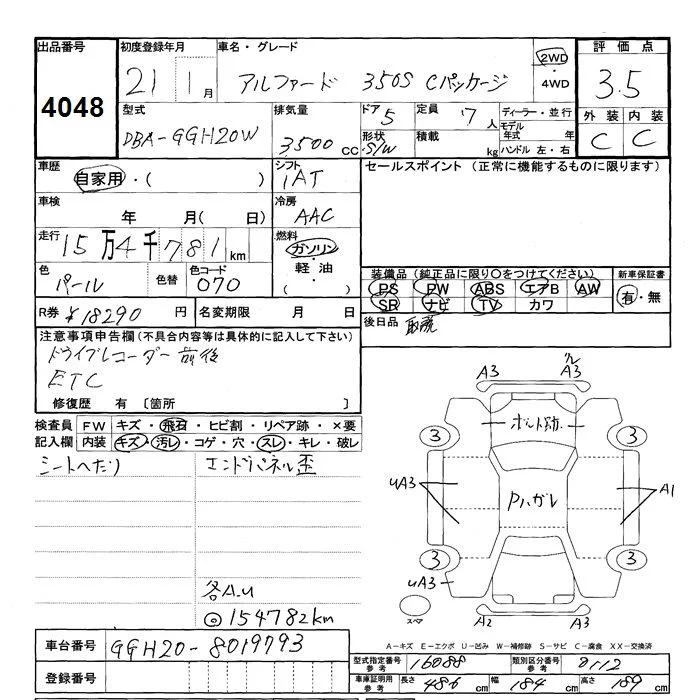 出品番号 初度登録年月 車名・グレード 2WD 評価点
4048 21年 1月 アルファード 350S Cパッケージ ・4WD 3.5
型式 排気量 ドア 5 定員 7人 ディーラー・並行 外装 内装
DBA-GGH20W 3500cc 形状 S/W 積載 kg モデル年式 年 C C
ハンドル 左・右
車歴 シフト セールスポイント (正常に機能するものに限ります)
自家用・( ) IAT
車検 冷房
年 月(日) AAC
走行 燃料
15万4千781km ガソリン
色 色替 色コード ・軽油・
パール 070 ( )
装備品(純正品に限り〇をつけてください) 新車保証書
PS PW ABS エアB AW 有・無
SR ナビ TV カワ
R券 ¥18290円 名変期限 月 日 後日品 取説
注意事項申告欄(不具合内容等は具体的に記入して下さい)
ドライブレコーダー前後
ETC
修復歴 有 〔箇所 〕
検査員 FW キズ・飛石・ヒビ割・リペア跡・×要
記入欄 内装 キズ・汚レ・コゲ・穴・スレ・キレ・破レ
シートへたり エンドパネル歪
各A.U
◎154782km
A3 グル A3
ボルト跡
3 3
UA3 Pハガレ A1
3 3
UA3
スペア A2 A3
A-キズ E-エクボ U-凹み W-補修跡 S-サビ C-腐食 XX-交換済
車台番号 GGH20-8019793
型式指定番号 参考 16088 類別区分番号 参考 0112
登録番号 車庫証明用 参考 長さ 486cm 幅 184cm 高さ 189cm